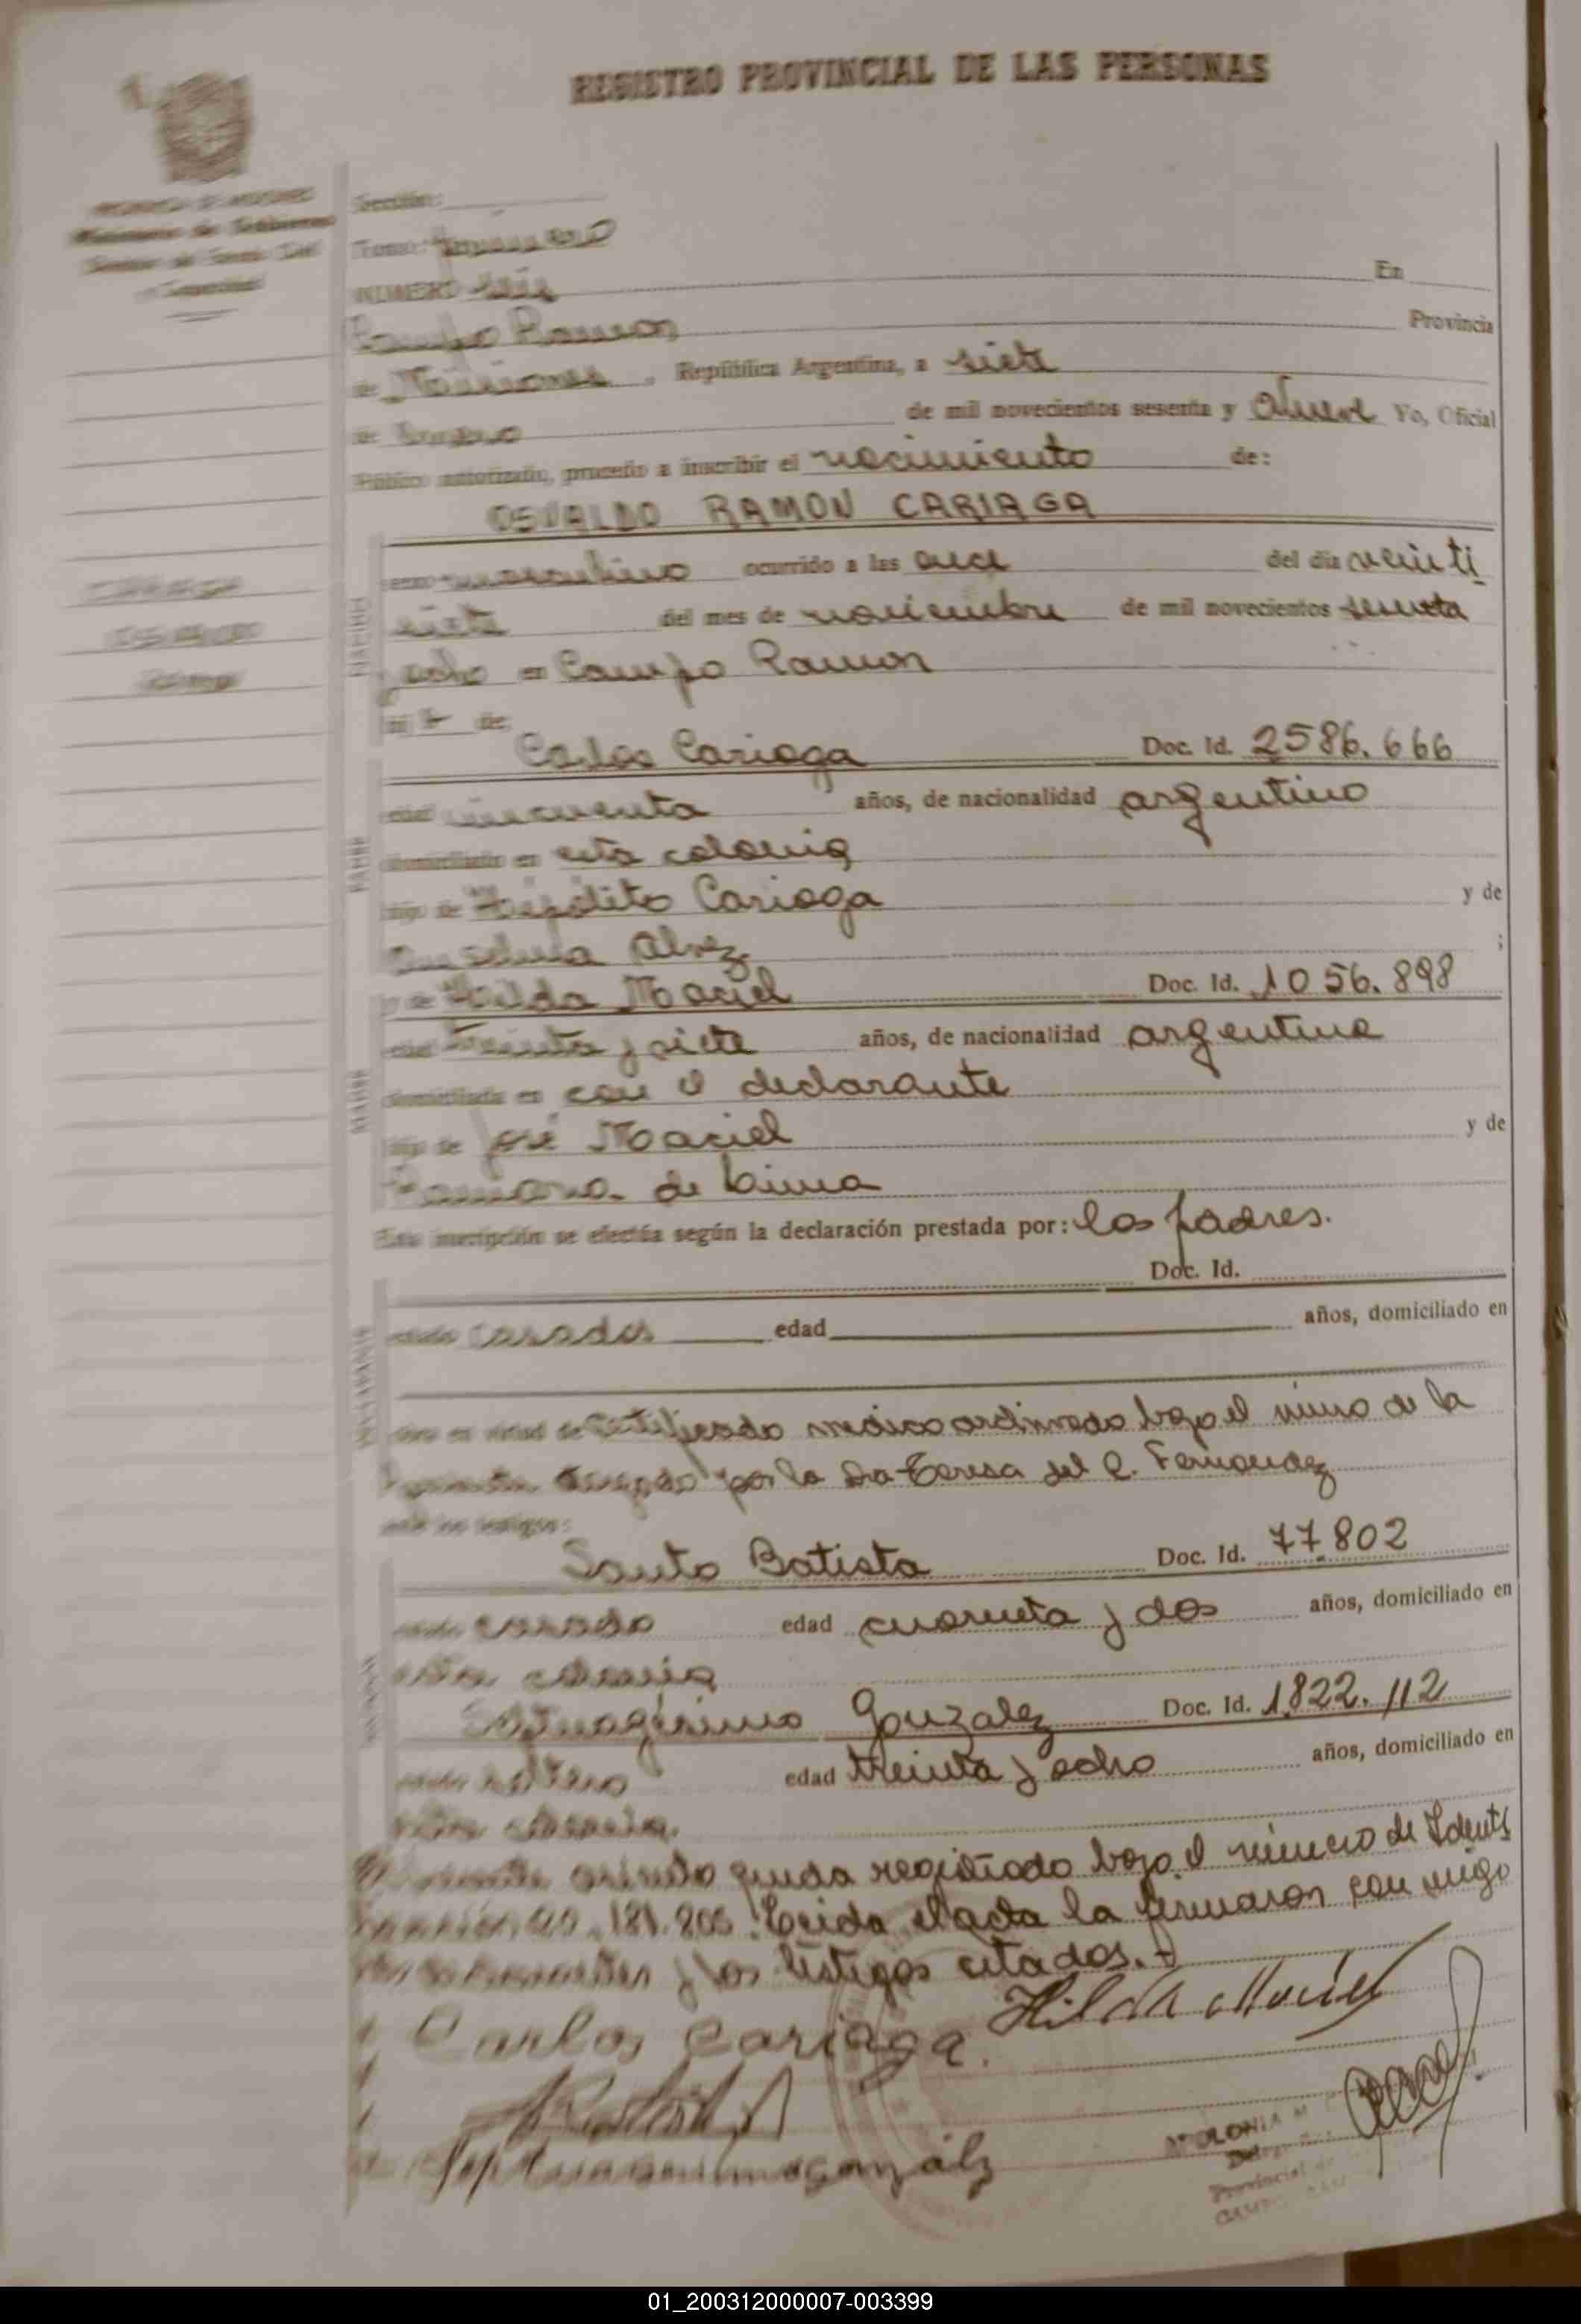 REGISTRO PROVINCIAL DE LAS PERSONAS
PROVINCIA DE MISIONES
Ministerio de Gobierno
Sección:
Tomo: primero
NUMERO seis En
Campo Ramon Provincia
de Misiones, República Argentina, a siete
de enero de mil novecientos sesenta y nueve Yo, Oficial
Público autorizado, procedo a inscribir el nacimiento de:
OSVALDO RAMON CARIAGA
CARIAGA
OSVALDO
RAMON
NACIDO
sexo masculino ocurrido a las once del día veinti
siete del mes de noviembre de mil novecientos sesenta
y ocho en Campo Ramon
de
PADRE
Carlos Cariaga Doc. Id. 2586.666
edad cincuenta años, de nacionalidad argentino
domiciliado en esta colonia
hijo de Hipólito Cariaga y de
Alvez ;
MADRE
y de Hilda Maciel Doc. Id. 1056.898
edad treinta y siete años, de nacionalidad argentina
domiciliada en con el declarante
hija de José Maciel y de
Ramona de Lima
Esta inscripción se efectúa según la declaración prestada por: los padres.
Doc. Id.
DECLARANTE
casados edad años, domiciliado en
obra en virtud de certificado médico archivado bajo el número de la
por la Dra Teresa del R. Fernandez
ante los testigos:
TESTIGOS
Santo Batista Doc. Id. 77.802
casado edad cuarenta y dos años, domiciliado en
esta colonia
Septuagésimo Gonzalez Doc. Id. 1.822.112
soltero edad treinta y ocho años, domiciliado en
esta colonia.
queda registrado bajo el número de Identi
Leida el acta la firmaron conmigo
los declarantes y los testigos citados.-
Carlos Cariaga. Hilda Maciel
Septuagesimo gonzalz
APOLONIA M
Provincial de
01_200312000007-003399